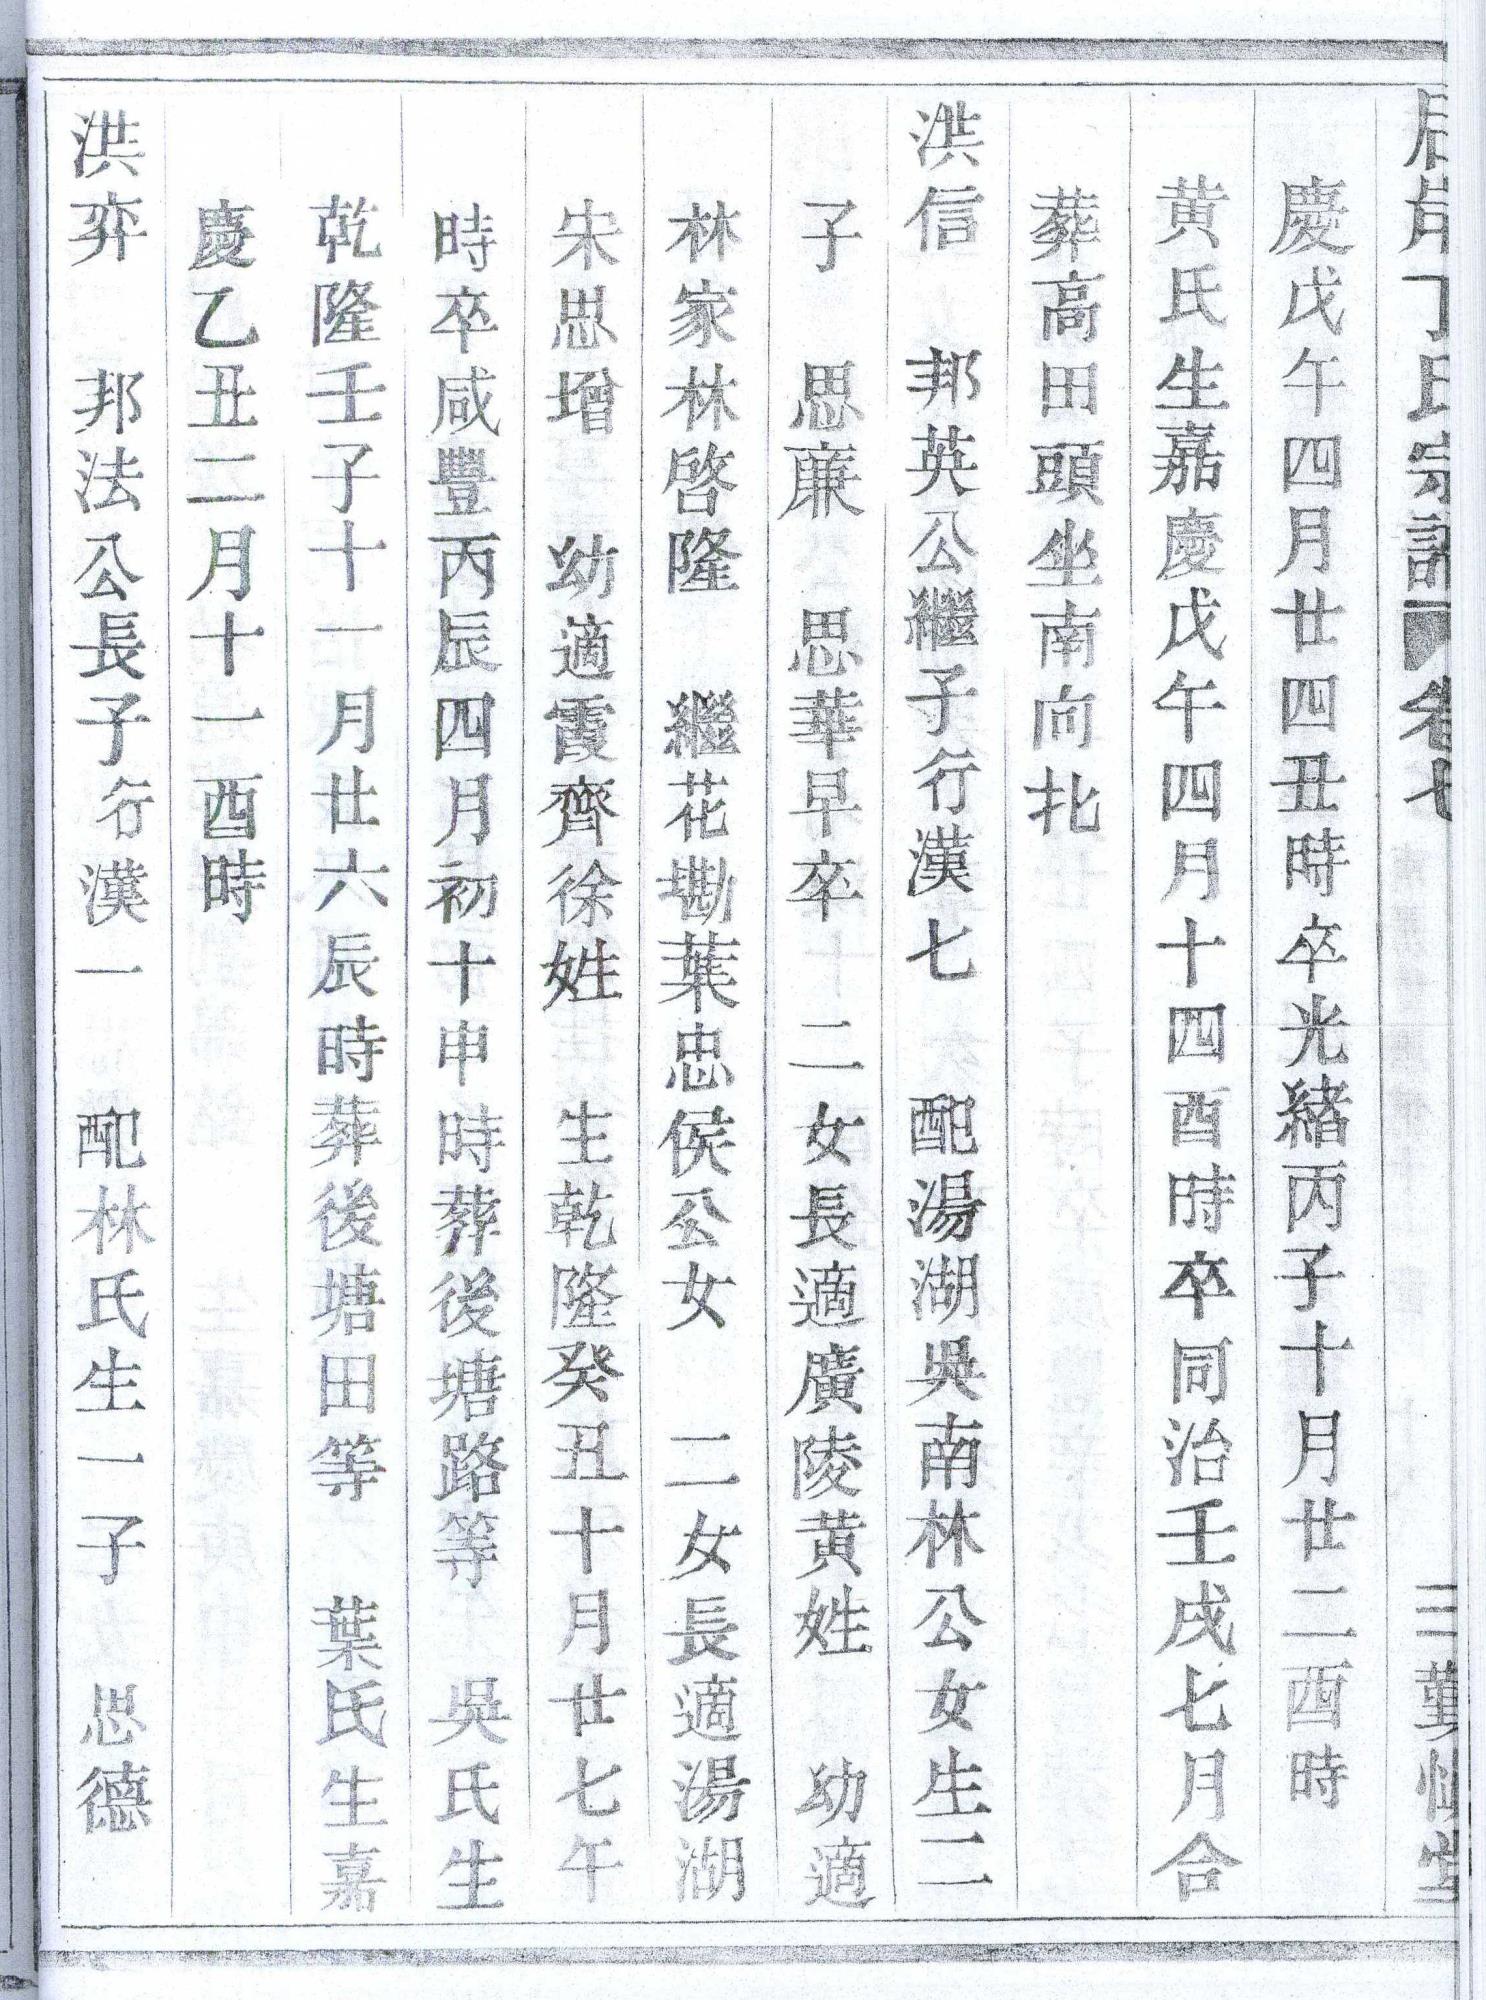 丁氏宗譜 卷七 三 勤慎堂
慶戊午四月廿四丑時卒光緒丙子十月廿二酉時
黄氏生嘉慶戊午四月十四酉時卒同治壬戌七月合
葬高田頭坐南向北
洪信 邦英公繼子行漢七 配湯湖吳南林公女生二
子 思廉 思華早卒 二女長適廣陵黄姓 幼適
林家林啓隆 繼花墈葉忠侯公女 二女長適湯湖
宋思增 幼適霞齊徐姓 生乾隆癸丑十月廿七午
時卒咸豐丙辰四月初十申時葬後塘路等 吳氏生
乾隆壬子十一月廿六辰時葬後塘田等 葉氏生嘉
慶乙丑二月十一酉時
洪弈 邦法公長子行漢一 配林氏生一子 思德